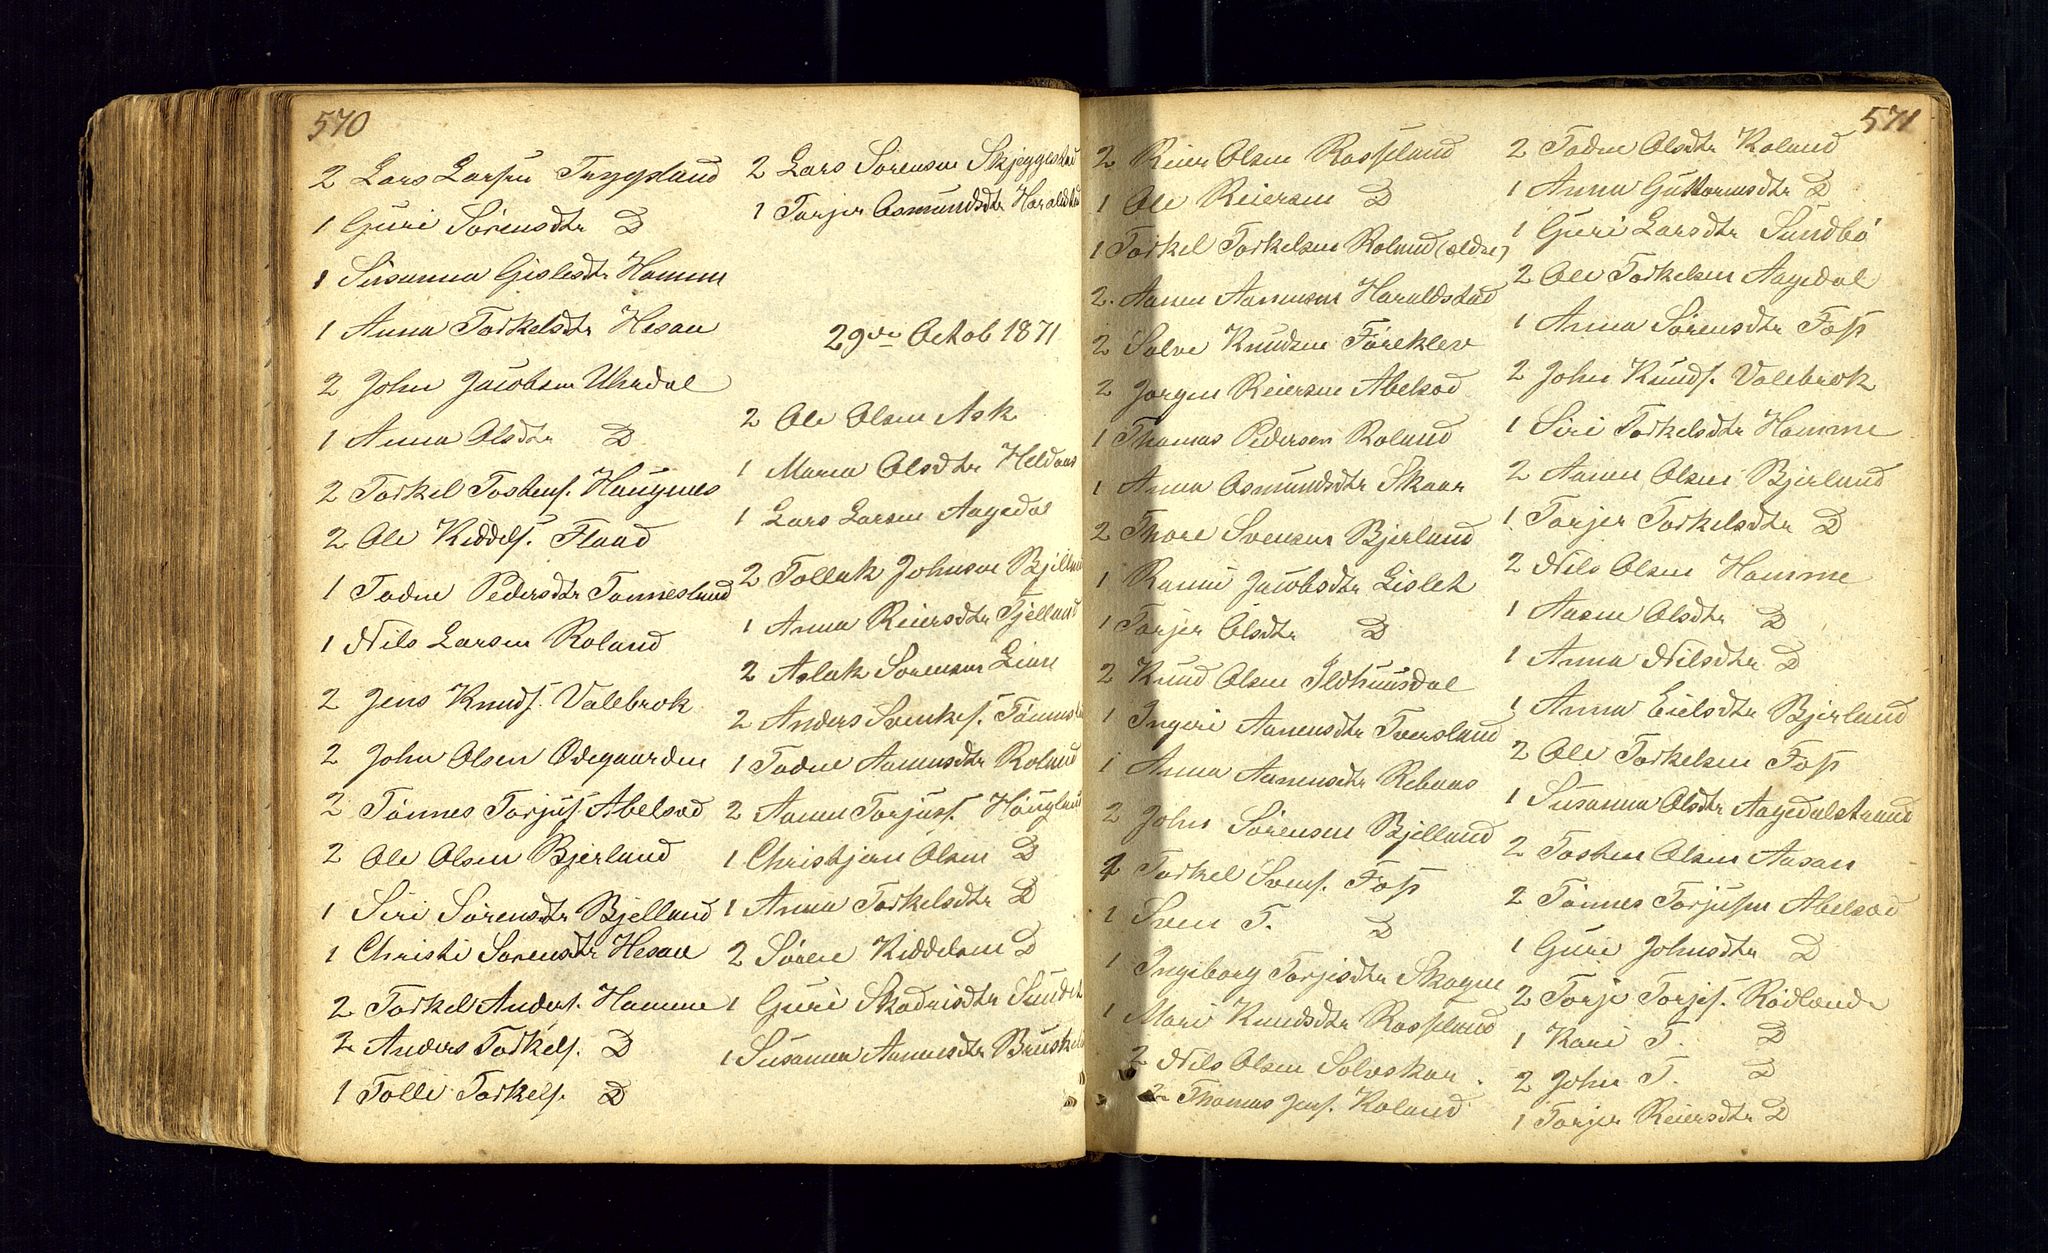 570
2 Lars Larsen Trygsland
1 Guri Sörensdtr D
1 Susanna Gislesdtr Homme
1 Anna Torkelsdtr Hesaa
2 John Jacobsen Uhrdal
1 Anna Olsdtr D
2 Torkel Tostens. Haugnes
2 Ole Kiddels. Flaad
1 Todne Pedersdtr Tonnesland
1 Nils Larsen Roland
2 Jens Knuds. Valebrok
2 John Olsen Odegaarden
2 Tönnes Torjus. Abelsæd
2 Ole Olsen Bjerland
1 Siri Sörensdtr Bjelland
1 Christi Sorensdtr Hesaa
2 Torkel Anders. Homme
2 Anders Torkels. D
1 Tolli Torkels. D
2 Lars Sorensen Skjeggestad
1 Torjer Osmundsdtr Haraldstad
29de Octob 1871
2 Ole Olsen Ask
1 Maren Olsdtr Heldaas
1 Lars Larsen Aagedal
2 Tollak Johnson
1 Anna Reiersdtr Fjelland
2 Aslak Sorensen Lian
2 Anders
1 Todne Aanensdtr Roland
2 Aanen Torjuss. Höugland
1 Christjan Olsen D
1 Anna Torkelsdtr D
2 Sören Kiddelsen D
1 Guri
1 Susanna Aanensdtr
571
2 Reier Olsen Rosseland
1 Ole Reiersen D
1 Torkel Torkelsen Roland (ældre)
2. Aanen Aanensen Haraldstad
2 Solve Knudsen Föreklev
2 Jorgen Reiersen Abelsæd
1 Thomas Pedersen Roland
1 Anna Osmundsdtr Skaar
2 Thore Svensen Bjerland
1 Ranni Jacobsdtr Lislet
1 Torjer Olsdtr D
2 Knud Olsen Ildhuusdal
1 Ingeri Aanensdtr Tversland
1 Anna Aanensdtr Rebaas
2 John Sörensen Bjelland
2 Torkel Svens. Foss
1 Sven T. D
1 Ingeborg Torjisdtr Skogen
1 Mari Knudsdtr Rosseland
2 Nils Olsen Solvskar
2 Thomas Jens. Roland
2 Todne Olsdtr Roland
1 Anna Guttormsdtr D
1 Guri Larsdtr Sundbö
2 Ole Torkelsen Aagedal
1 Anna Sörensdtr Foss
2 John Knuds. Valebrok
1 Siri Torkelsdtr Homme
2 Aanen Olsen Bjerland
1 Torjer Torkelsdtr D
2 Nils Olsen Homme
1 Aasne Olsdtr D
1 Anna Nilsdtr D
1 Anna Eielsdtr Bjerland
2 Ole Torkelsen Foss
1 Susanna Olsdtr Aagedalstrand
2 Tosten Olsen Aasan
2 Tönnes Torjusen Abelsæd
1 Guri Johnsdtr D
2 Torje Torjes. Rödland
1 Kari T. D
2 John T. D
1 Torjer Reiersdtr D